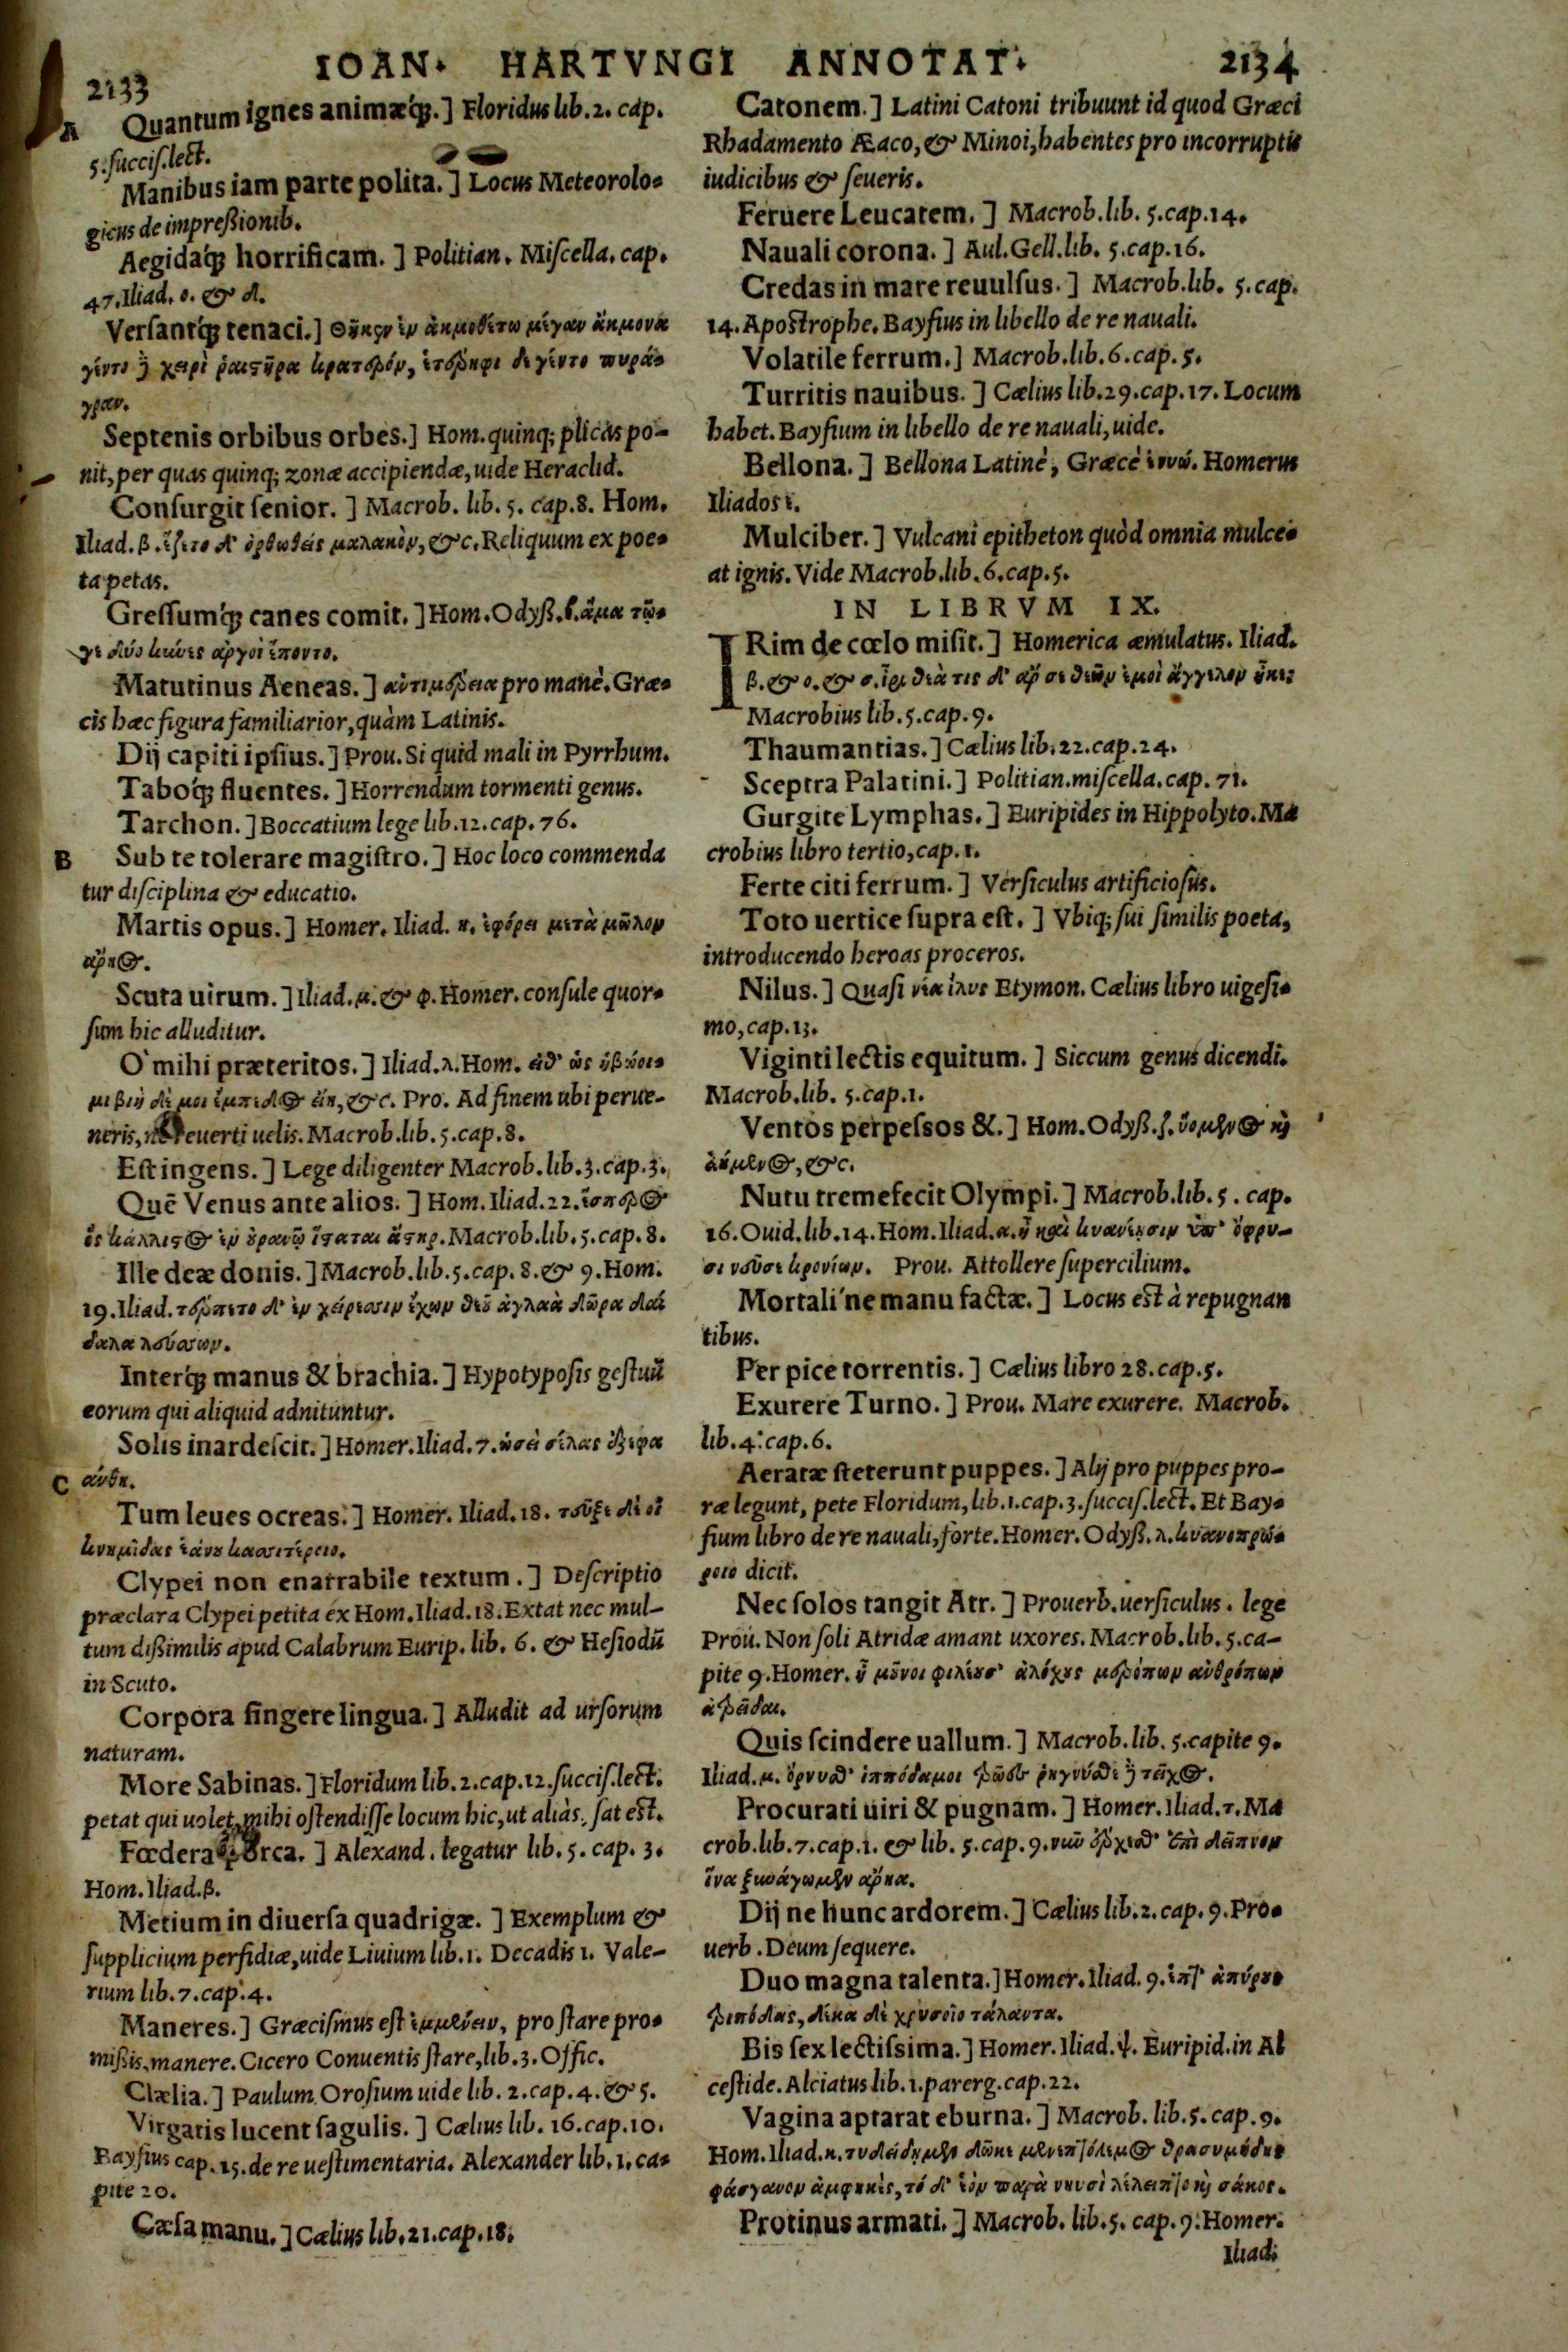 IOAN. HARTVNGI ANNOTAT.
2133
2134
A
Quantum ignes animæq́ꝫ.] Floridus lib.2. cap.
5.succis.lect.
Manibus iam parte polita.] Locus Meteorolo-
gicus de impreßionib.
Aegidaq́ꝫ horrificam. ] Politian. Miscella. cap.
47.Iliad. ο. & δ.
Versantq́ꝫ tenaci.] Θῆκεν ἐν ἀκμοθέτω μέγαν ἄκμονα
γέντο ὃ χειρὶ ῥαιστῆρα κρατερόν, ἑτέρηφι δὲ γέντο πυρά-
γραν.
Septenis orbibus orbes.] Hom.quinq; plicas po-
nit,per quas quinq; zonæ accipiendæ,uide Heraclid.
Consurgit senior. ] Macrob. lib. 5. cap.8. Hom.
Iliad.β.ἕζετο δ' ὀρθωθείς μαλακὸν, &c.Reliquum ex poe-
ta petas.
Gressumq́ꝫ canes comit. ] Hom.Odyß.β.ἅμα τῶ-
γε δύο κύνες ἀργοὶ ἕποντο.
Matutinus Aeneas.] αὐτιμέρεια pro manè.Græ-
cis hæc figura familiarior,quàm Latinis.
Dij capiti ipsius.] Prou. Si quid mali in Pyrrhum.
Taboq́ꝫ fluentes. ] Horrendum tormenti genus.
Tarchon. ] Boccatium lege lib.12.cap.76.
B
Sub te tolerare magistro.] Hoc loco commenda
tur disciplina & educatio.
Martis opus.] Homer. Iliad. η. ἐφόρει μετὰ μῶλον
ἄρηος.
Scuta uirum.] Iliad.μ.& φ.Homer.consule quor-
sum hic alluditur.
O` mihi præteritos.] Iliad.λ.Hom. εἴθ' ὡς ἡβώοι-
μι βιὴ δέ μοι ἔμπεδος εἴη, &c. Pro. Ad finem ubi perue-
neris, ne reuerti uelis.Macrob.lib.5.cap.8.
Est ingens.] Lege diligenter Macrob.lib.3.cap.3.
Quē Venus ante alios. ] Hom.Iliad.22.ἕσπερος
ὃς κάλλιστος ἐν ὀρανῷ ἵσταται ἄστηρ.Macrob.lib.5.cap.8.
Ille deæ donis.] Macrob.lib.5.cap.8.& 9.Hom.
19.Iliad.τέρπετο δ' ἐν χείρεσσιν ἔχων θεοῦ ἀγλαὰ δῶρα δαί
δαλα λεύσσων.
Interq́ꝫ manus & brachia. ] Hypotyposis gestuū
eorum qui aliquid adnituntur.
Solis inardescit.] Homer.Iliad.7.ὡσεὶ σέλας ὀξεφα
C
αὐθη.
Tum leues ocreas.] Homer. Iliad.18. τεῦξε δέ οἱ
κνημῖδας ἑάνου κασσιτέροιο.
Clypei non enarrabile textum.] Descriptio
præclara Clypei petita ex Hom.Iliad.18.Extat nec mul-
tum dißimilis apud Calabrum Eurip. lib. 6. & Hesiodū
in Scuto.
Corpora fingere lingua.] Alludit ad ursorum
naturam.
More Sabinas.] Floridum lib.2.cap.12.succis.lect.
petat qui uolet, mihi ostendisse locum hic,ut aliàs, sat est.
Fœdera porca. ] Alexand. legatur lib.5. cap. 3.
Hom.Iliad.β.
Metium in diuersa quadrigæ. ] Exemplum &
supplicium perfidiæ,uide Liuium lib.1. Decadis 1. Vale-
rium lib.7.cap.4.
Maneres.] Græcismus est ἐμμένειν, pro stare pro-
mißis,manere.Cicero Conuentis stare,lib.3.Offic.
Clælia.] Paulum Orosium uide lib.2.cap.4.& 5.
Virgatis lucent sagulis.] Cælius lib. 16.cap.10.
Bayfius cap.15.de re uestimentaria. Alexander lib.1.ca-
pite 20.
Cæsa manu.] Cælius lib.21.cap.18.
Catonem.] Latini Catoni tribuunt id quod Græci
Rhadamento Æaco,& Minoi,habentes pro incorruptis
iudicibus & seueris.
Feruere Leucatem. ] Macrob.lib. 5.cap.14.
Nauali corona.] Aul.Gell.lib. 5.cap.16.
Credas in mare reuulsus.] Macrob.lib. 5.cap.
14.Apostrophe.Bayfius in libello de re nauali.
Volatile ferrum.] Macrob.lib.6.cap.5.
Turritis nauibus.] Cælius lib.29.cap.17. Locum
habet.Bayfium in libello de re nauali,uide.
Bellona.] Bellona Latinè, Græcè ἐνυώ. Homerus
Iliados ε.
Mulciber.] Vulcani epitheton quòd omnia mulce-
at ignis.Vide Macrob.lib.6.cap.5.
IN LIBRVM IX.
IRim de cœlo misit.] Homerica æmulatus. Iliad.
β.& ο.& σ.ἶρι θεὰ τίς δ' ἄρ σε θεῶν ἐμοὶ ἄγγελον ἧκε;
Macrobius lib.5.cap.9.
Thaumantias.] Cælius lib.22.cap.24.
Sceptra Palatini.] Politian.miscella.cap. 71.
Gurgite Lymphas.] Euripides in Hippolyto.Ma
crobius libro tertio,cap.1.
Ferte citi ferrum.] Versiculus artificiosus.
Toto uertice supra est.] Vbiq; sui similis poeta,
introducendo heroas proceros.
Nilus.] Quasi νέα ἰλύς Etymon. Cælius libro uigesi-
mo,cap.13.
Viginti lectis equitum. ] Siccum genus dicendi.
Macrob.lib. 5.cap.1.
Ventos perpessos &.] Hom.Odyß.ζ.ὑόμενος καὶ
ἀήμενος,&c.
Nutu tremefecit Olympi.] Macrob.lib.5. cap.
16.Ouid.lib.14.Hom.Iliad.α.ἦ καὶ κυανέῃσιν ἐπ' ὀφρύ-
σι νεῦσε κρονίων. Prou. Attollere supercilium.
Mortali'ne manu factæ.] Locus est à repugnan
tibus.
Per pice torrentis.] Cælius libro 28.cap.5.
Exurere Turno.] Prou. Mare exurere. Macrob.
lib.4.cap.6.
Aeratæ steterunt puppes.] Alij pro puppes pro-
ræ legunt, pete Floridum,lib.1.cap.3.succis.lect. Et Bay-
fium libro de re nauali,forte.Homer.Odyß.λ.κυανοπρώ-
ροιο dicit.
Nec solos tangit Atr.] Prouerb.uersiculus. lege
Prou.Non soli Atridæ amant uxores.Macrob.lib.5.ca-
pite 9.Homer.ἦ μοῦνοι φιλέουσ' ἀλόχους μερόπων ἀνθρόπων
ἀτρεῖδαι.
Quis scindere uallum.] Macrob.lib. 5.capite 9.
Iliad.μ.ὄρνυσθ' ἱππόδαμοι τρῶες ῥηγνύσθε ὃ τεῖχος.
Procurati uiri & pugnam.] Homer.Iliad.τ.Ma
crob.lib.7.cap.1. & lib. 5.cap.9.νῦν ἔρχεσθ' ἐπὶ δεῖπνον
ἵνα ξυνάγωμεν ἄρηα.
Dij ne hunc ardorem.] Cælius lib.2.cap.9.Pro-
uerb.Deum sequere.
Duo magna talenta.] Homer.Iliad.9.ἕπτ' ἀπύρους
τρίποδας, δέκα δὲ χρυσοῖο τάλαντα.
Bis sex lectissima.] Homer.Iliad.ψ. Euripid.in Al
cestide.Alciatus lib.1.parerg.cap.22.
Vagina aptarat eburna.] Macrob. lib.5.cap.9.
Hom.Iliad.κ.τυδείδῃ μὲν δῶκε μενεπτόλεμος θρασυμήδης
φάσγανον ἀμφηκὲς,τό δ' ἑὸν παρὰ νηυσὶ λέλειπτο καὶ σάκος.
Protinus armati. ] Macrob. lib.5. cap.9.Homer.
Iliad.